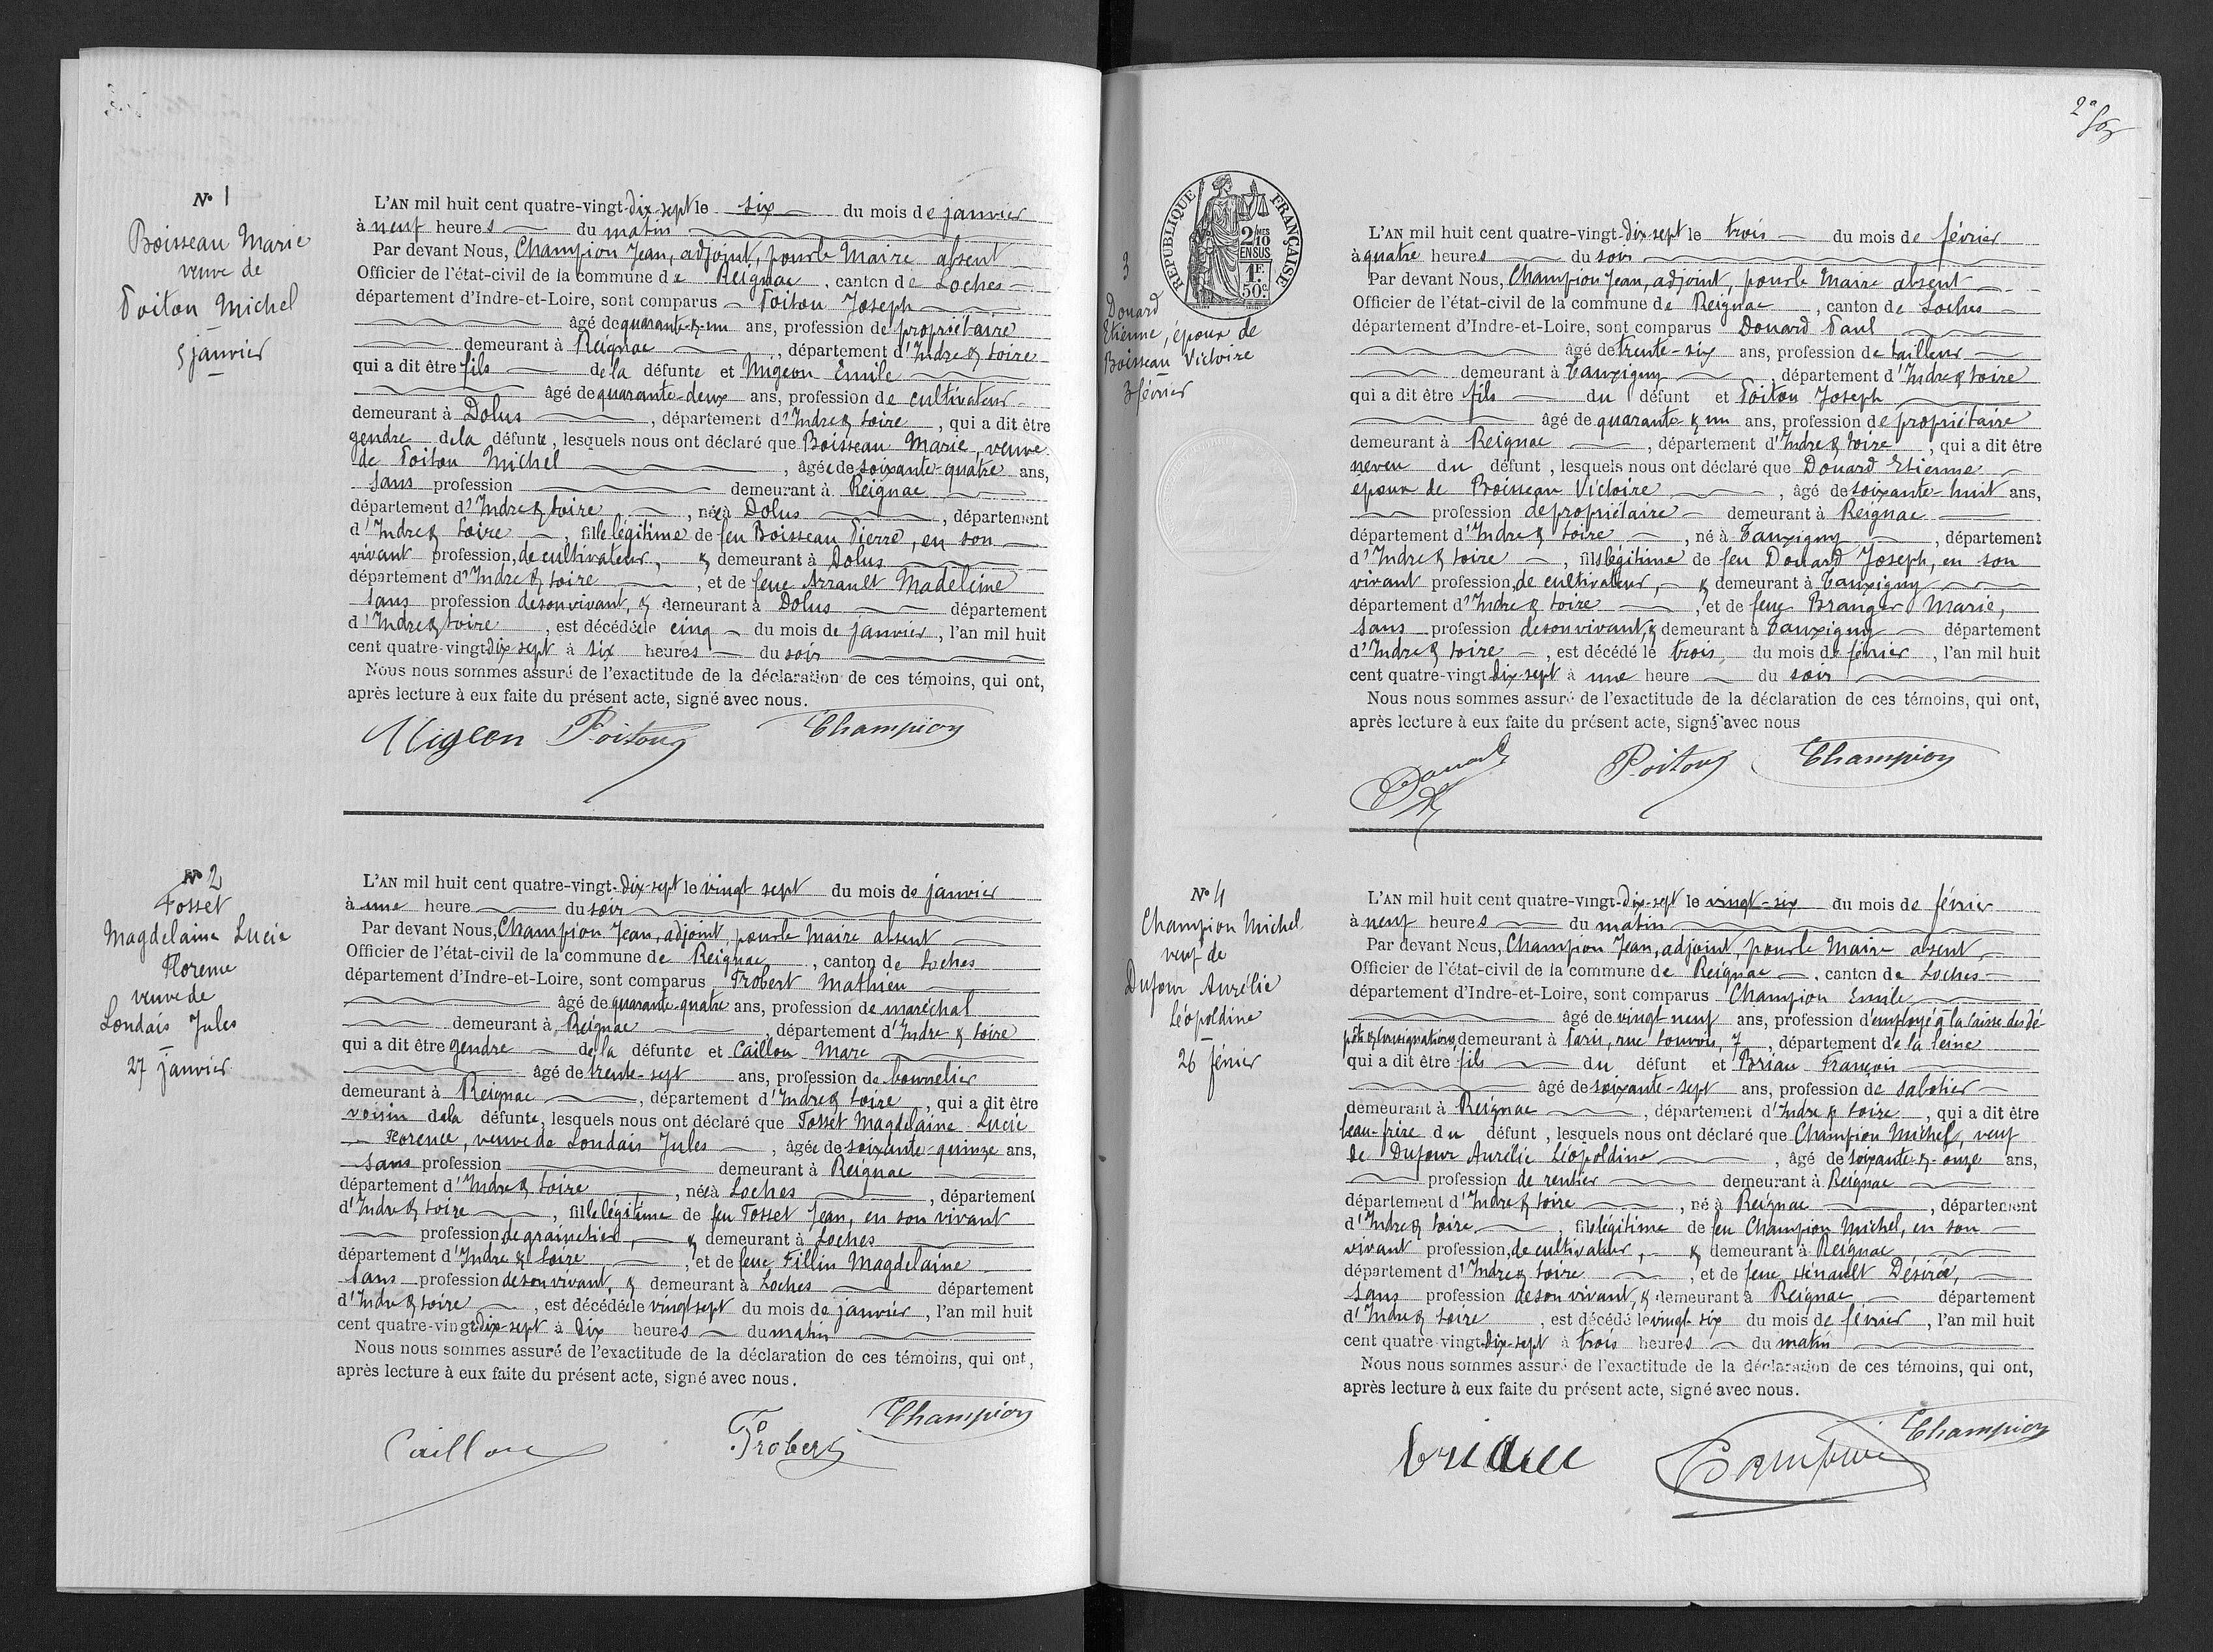 Nº 1
Boisseau Marie
veuve de
Poitou Michel
5 janvier
L'AN mil huit cent quatre-vingt-dix-sept le six du mois de janvier
à neuf heures du matin
Par devant Nous, Champion Jean, adjoint, pour le Maire absent
Officier de l'état-civil de la commune de Reignac, canton de Loches
département d'Indre-et-Loire, sont comparus Poitou Joseph
âgé de quarante & un ans, profession de propriétaire
demeurant à Reignac, département d'Indre & Loire
qui a dit être fils de la défunte et Migeon Emile
âgé de quarante-deux ans, profession de cultivateur
demeurant à Dolus, département d'Indre & Loire, qui a dit être
gendre de la défunte, lesquels nous ont déclaré que Boisseau Marie, veuve
de Poitou Michel, âgée de soixante-quatre ans,
sans profession demeurant à Reignac
département d'Indre & Loire, née à Dolus, département
d'Indre & Loire, fille légitime de feu Boisseau Pierre, en son
vivant profession, de cultivateur, & demeurant à Dolus
département d'Indre & Loire, et de feue Arrault Madeleine
sans profession de son vivant, & demeurant à Dolus département
d'Indre & Loire, est décédée le cinq du mois de janvier, l'an mil huit
cent quatre-vingt dix-sept à six heures du soir
Nous nous sommes assuré de l'exactitude de la déclaration de ces témoins, qui ont,
après lecture à eux faite du présent acte, signé avec nous.
Migeon Poitou Champion
Nº 2
Fosset
Magdelaine Lucie
Florence
veuve de
Londais Jules
27 janvier
L'AN mil huit cent quatre-vingt-dix-sept le vingt sept du mois de janvier
à une heure du soir
Par devant Nous, Champion Jean, adjoint, pour le Maire absent
Officier de l'état-civil de la commune de Reignac, canton de Loches
département d'Indre-et-Loire, sont comparus Frobert Mathieu
âgé de quarante-quatre ans, profession de maréchal
demeurant à Reignac, département d'Indre & Loire
qui a dit être gendre de la défunte et Caillou Marc
âgé de trente-sept ans, profession de bourrelier
demeurant à Reignac, département d'Indre & Loire, qui a dit être
voisin de la défunte, lesquels nous ont déclaré que Fosset Magdelaine Lucie
Florence, veuve de Londais Jules, âgée de soixante-quinze ans,
sans profession demeurant à Reignac
département d'Indre & Loire, née à Loches, département
d'Indre & Loire, fille légitime de feu Fosset Jean, en son vivant
profession de grainetier, & demeurant à Loches
département d'Indre & Loire, et de feue Fillin Magdelaine
sans profession de son vivant, & demeurant à Loches département
d'Indre & Loire, est décédée le vingt sept du mois de janvier, l'an mil huit
cent quatre-vingt dix-sept à dix heures du matin
Nous nous sommes assuré de l'exactitude de la déclaration de ces témoins, qui ont,
après lecture à eux faite du présent acte, signé avec nous.
Caillou Frobert Champion
REPUBLIQUE FRANÇAISE
2/10 MES
EN SUS
1F.
50c
3
Douard
Etienne, époux de
Boisseau Victoire
3 février
L'AN mil huit cent quatre-vingt-dix sept le trois du mois de février
à quatre heures du soir
Par devant Nous, Champion Jean, adjoint, pour le Maire absent
Officier de l'état-civil de la commune de Reignac, canton de Loches
département d'Indre-et-Loire, sont comparus Douard Paul
âgé de trente-six ans, profession de tailleur
demeurant à Tauxigny, département d'Indre & Loire
qui a dit être fils du défunt et Poitou Joseph
âgé de quarante & un ans, profession de propriétaire
demeurant à Reignac, département d'Indre & Loire, qui a dit être
neveu du défunt, lesquels nous ont déclaré que Douard Etienne
époux de Boisseau Victoire, âgé de soixante-huit ans,
profession de propriétaire demeurant à Reignac
département d'Indre & Loire, né à Tauxigny, département
d'Indre & Loire, fils légitime de feu Douard Joseph, en son
vivant profession, de cultivateur, & demeurant à Tauxigny
département d'Indre & Loire, et de feue Branger Marie,
sans profession de son vivant, & demeurant à Tauxigny département
d'Indre & Loire, est décédé le trois du mois de février, l'an mil huit
cent quatre-vingt dix-sept à une heure du soir
Nous nous sommes assuré de l'exactitude de la déclaration de ces témoins, qui ont,
après lecture à eux faite du présent acte, signé avec nous
Douard Poitou Champion
Nº 4
Champion Michel
veuf de
Dufour Aurélie
Léopoldine
26 février
L'AN mil huit cent quatre-vingt-dix-sept le vingt-six du mois de février
à neuf heures du matin
Par devant Nous, Champion Jean, adjoint, pour le Maire absent
Officier de l'état-civil de la commune de Reignac, canton de Loches
département d'Indre-et-Loire, sont comparus Champion Emile
âgé de vingt neuf ans, profession d'employé à la Caisse des dé-
pôts & Consignations demeurant à Paris, rue Louvois, 7, département de la Seine
qui a dit être fils du défunt et Briau François
âgé de soixante-sept ans, profession de sabotier
demeurant à Reignac, département d'Indre & Loire, qui a dit être
beau-frère du défunt, lesquels nous ont déclaré que Champion Michel, veuf
de Dufour Aurélie Léopoldine, âgé de soixante-&-onze ans,
profession de rentier demeurant à Reignac
département d'Indre & Loire, né à Reignac, département
d'Indre & Loire, fils légitime de feu Champion Michel, en son
vivant profession, de cultivateur, & demeurant à Reignac
département d'Indre & Loire, et de feue Hénault Désirée,
sans profession de son vivant, & demeurant à Reignac département
d'Indre & Loire, est décédé le vingt-six du mois de février, l'an mil huit
cent quatre-vingt dix-sept à trois heures du matin
Nous nous sommes assuré de l'exactitude de la déclaration de ces témoins, qui ont,
après lecture à eux faite du présent acte, signé avec nous.
briau Champion Champion